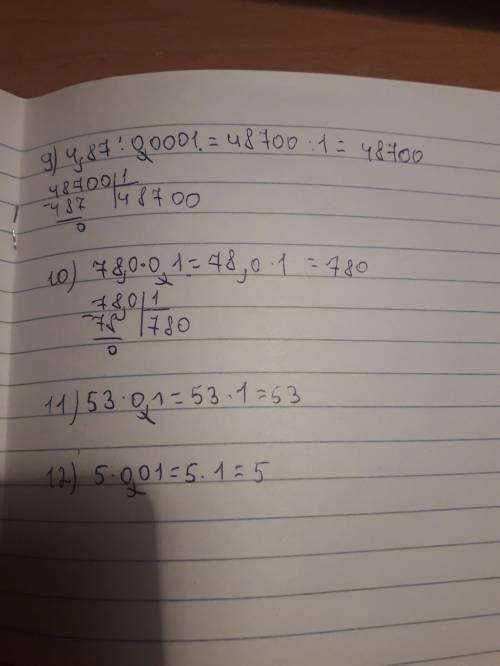 9) 4,87 : 0,0001 = 48700 : 1 = 48700
48700 | 1
-487 | 48700
0
10) 78,0 · 0,1 = 78,0 · 1 = 780
-78,0 | 1
78 | 780
0
11) 53 · 0,1 = 53 · 1 = 53
12) 5 · 0,01 = 5 · 1 = 5